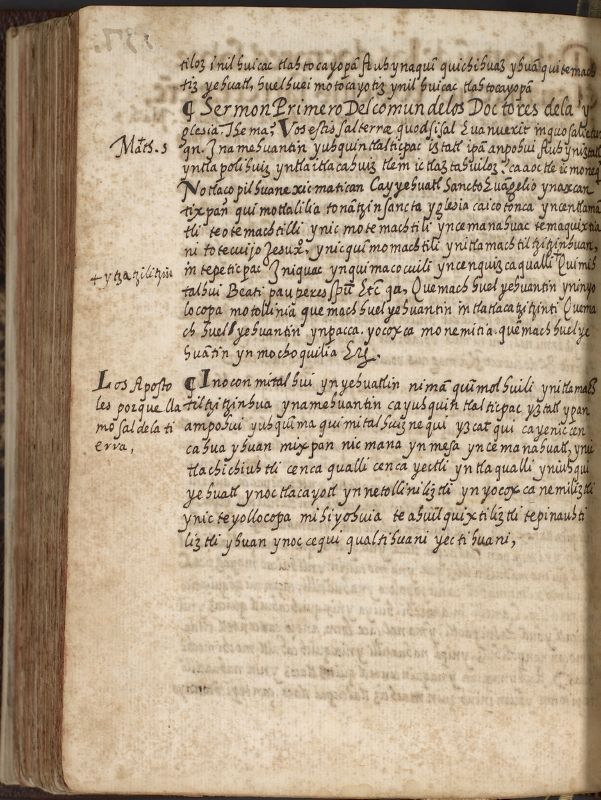 tiloz inilhuicac tlahtocayopā auh ynaquī quichihuaz yhuā quitemach
tiz yehuatl, huelhuei motocayotiz ynilhuicac tlahtocayopā
¶ Sermon Primero Delcomun delos Doctores dela y
glesia. Thema, Vos estis sal terræ quod si sal Euanuerit in quo salietur
Math. 5
qn. Inamehuantin yuhquin tlalticpac iztatl ipā anpohui auh yniztatl
yntla polihuiz yntla itlacahuiz tlem ic tlaztahuiloz? ca aoc tle ic moneq
Notlaçopilhuane xicmatican Cayyehuatl Sancto Euāgelio ynaxcan
tixpan quimotlalilia tonātzin sancta yglesia caicotonca yncentlama
tli teotemachtilli ynic motemachtili yncemanahuac temaquixtia
ni totecuijo Jesux̄o, ynic quimomachtili ynitlamachtiltzitzinhuan,
+ ytzatzilitzin
in tepeticpac Iniquac ynquimocuili yncenquizcaqualli Quimih
talhui Beati pauperes sp̄u Etc̄ qa. Quemach huel yehuantin yninyo
locopa motollinia quemach huel yehuantin intlatlacatzitzinti Quema
ch huel yehuantin ynpacca. yocoxca monemitia. quemach huel ye
huātin yn mochoquilia Etc̄.
Los Aposto
les porque lla
mo sal dela ti
erra,
¶ Inoconmitalhui yn yehuatlin nimā quimolhuili ynitlamach
tiltzitzinhua ynamehuantin cayuhquin tlalticpac yztatl ypan
ampohui yuhquīma quimitalhuizne qui yztatl qui cayenic cen
cahua yhuan mixpan nicmana yn mesa yncemanahuatl, ynic
tlachichiuhtli cenca qualli cenca yectli yn tlaqualli yniuhqui
yehuatl ynoctlacayotl ynnetolliniliztli yn yocoxcanemiliztli
ynic teyollocopa mihiyohuia teahuilquixtiliztli tepinauhti
liztli yhuan ynoccequi qualtihuani yectihuani,